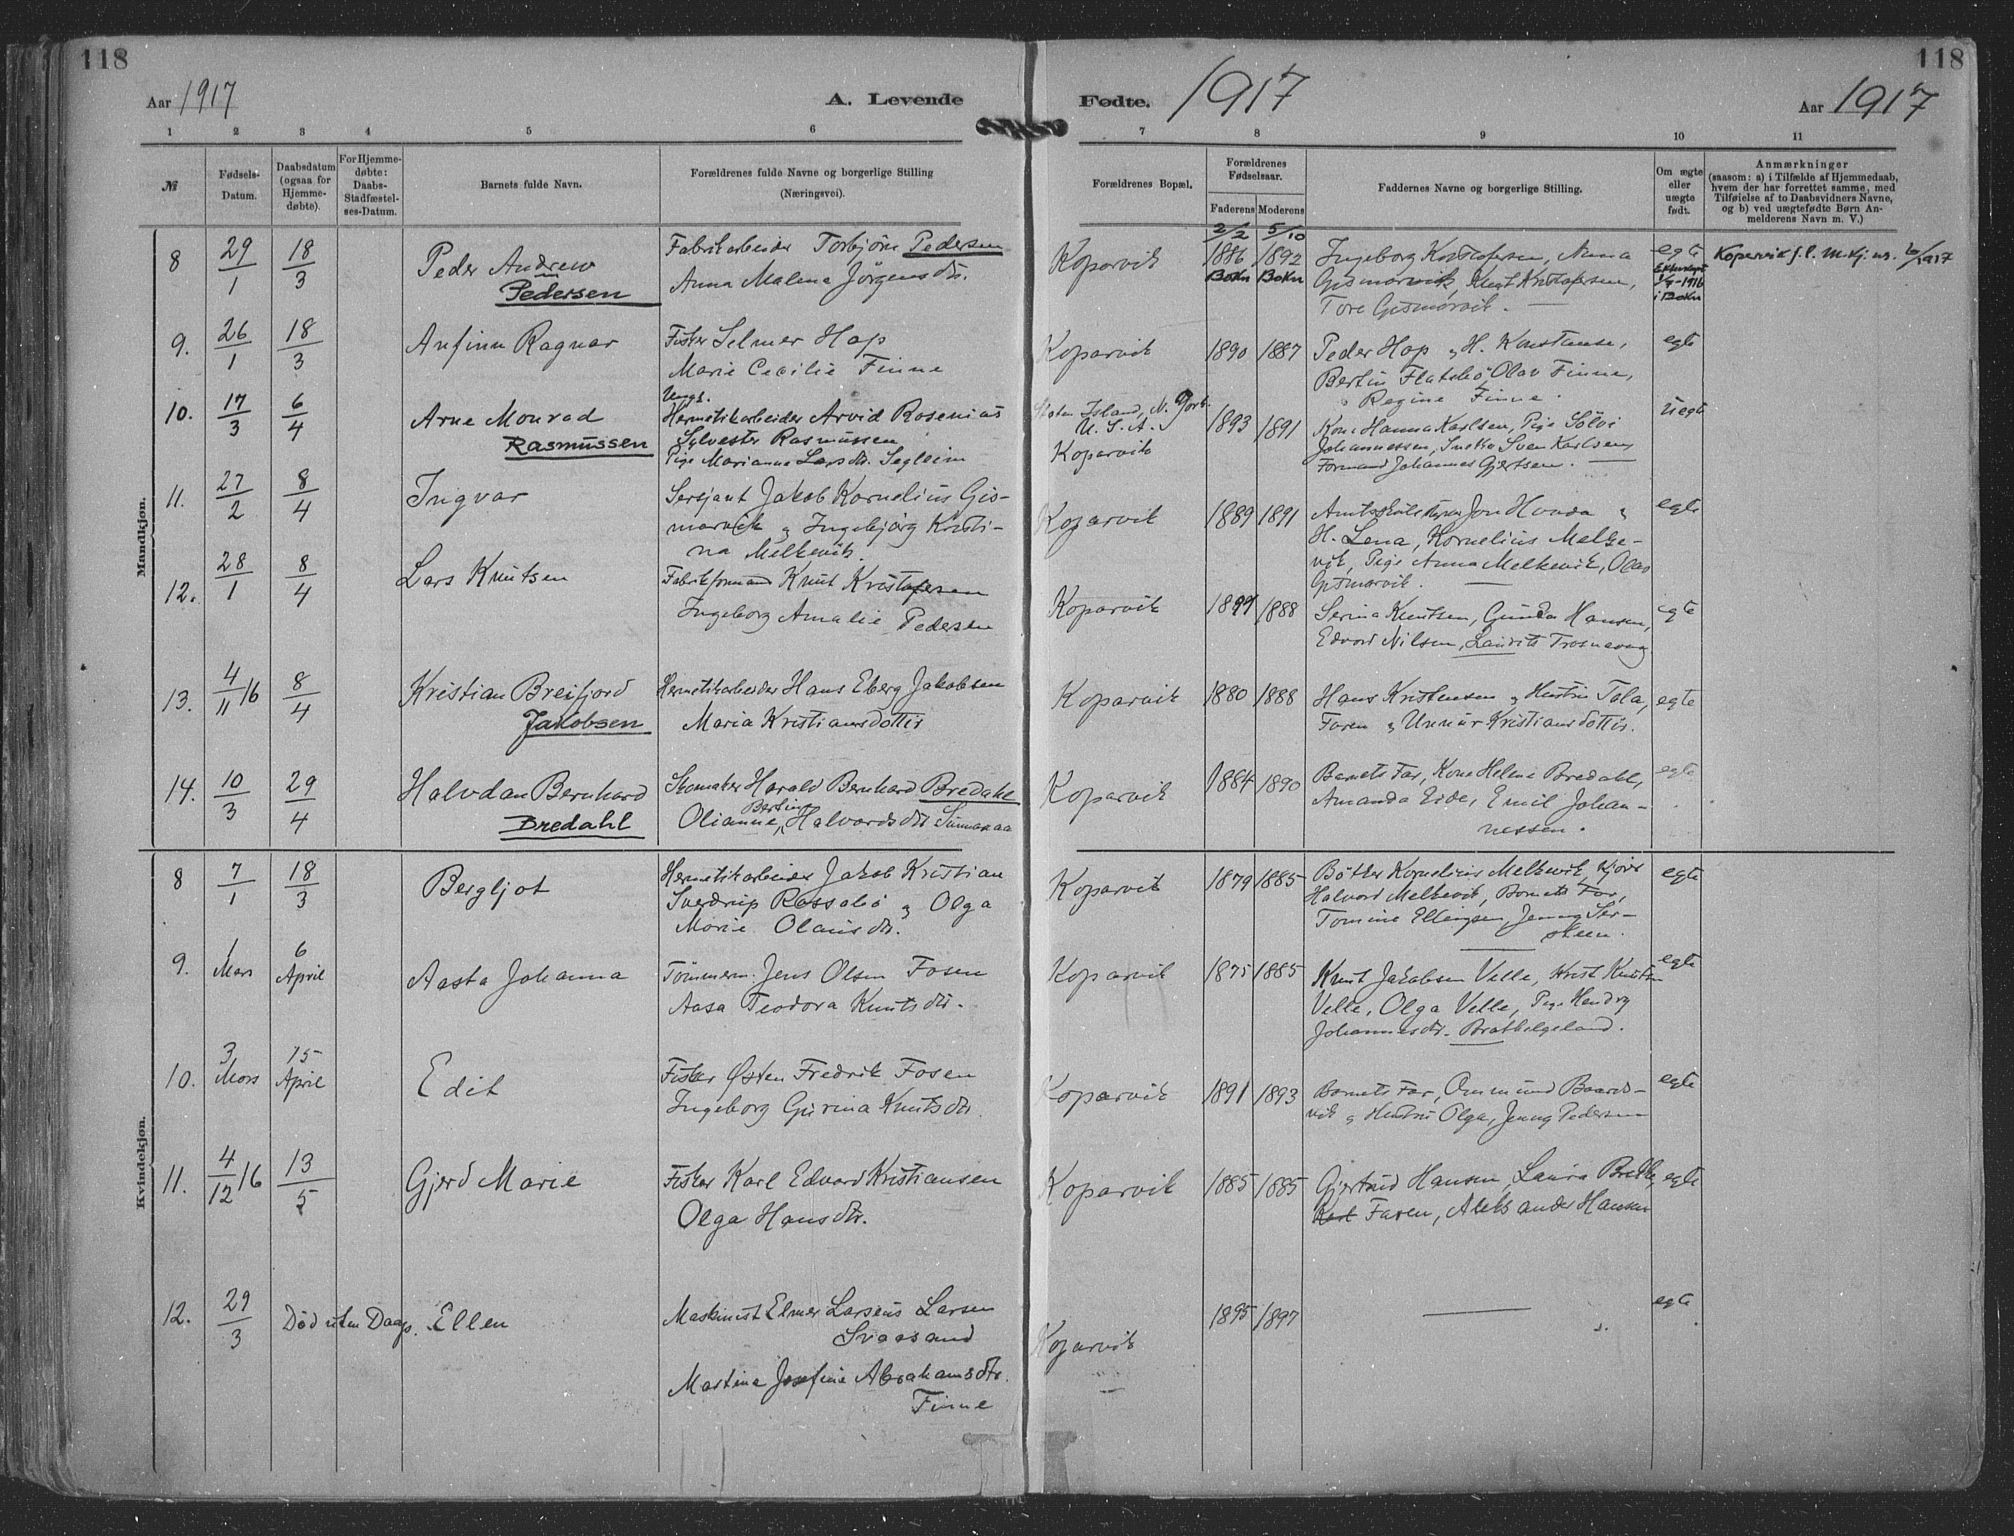 118
118
Aar 1917
A. Levende
Fødte.
1917
Aar 1917
1 2 3 4 5 6 7 8 9 10 11
№
Fødsels-Datum.
Daabsdatum (ogsaa for Hjemme-døbte).
For Hjemme-døbte: Daabs-Stadfæstel-ses-Datum.
Barnets fulde Navn.
Forældrenes fulde Navne og borgerlige Stilling (Næringsvei).
Forældrenes Bopæl.
Forældrenes Fødselsaar.
Faderens Moderens
Faddernes Navne og borgerlige Stilling.
Om ægte eller uægte født.
Anmærkninger
(saasom: a) i Tilfælde af Hjemmedaab,
hvem der har forrettet samme, med
Tilføielse af to Daabsvidners Navne,
og b) ved uægtefødte Børn An-
melderens Navn m. V.)
Mandkjøn.
8 29/1 18/3 Peder Andrew Pedersen
Fabrikarbeider Torbjörn Pedersen
Anna Malena Jörgensdtr.
Koparvik
2/2 1886 Bokn 5/10 1892 Bokn
Ingeborg Kristofersen, Anna
Gismarvik, Knut Kristofersen,
Tore Gismarvik.
egte
1916 i Bokn
Kopervik
9. 26/1 18/3 Anfinn Ragnar
Fisker Selmer Hop
Marie Cecilie Finne
Koparvik 1890 1887
Peder Hop og H. Konstanse,
Bertin Flatebö, Olav Finne,
Regine Finne.
egte
10. 17/3 6/4 Arne Monrad Rasmussen
Ungk.
Hermetikarbeider Arvid Rosenius
Sylvester Rasmussen
Pige Marianne Larsdtr. Segleim
Staten Island, N. York
U. S. A.
Koparvik
1893 1891
Kone Hanna Karlsen, Pige Sölvi
Johannessen, Snekker Sven Karlsen,
Formand Johannes Gjertsen.
uegte
11. 27/2 8/4 Ingvar
Sersjant Jakob Kornelius Gis-
marvik og Ingebjörg Kristi-
na Melkevik.
Koparvik 1889 1891
Amtsskolestyrer Jon Hovda og
H. Lena, Kornelius Melke-
vik, Pige Anna Melkevik, Olav
Gismarvik.
egte
12. 28/1 8/4 Lars Knutsen
Fabrikformand Knut Kristofersen
Ingeborg Amalie Pedersen
Koparvik 1888
Serina Knutsen, Gunda Hansen,
Edvard Nilsen, Laurits Trosnavaag
egte
13. 4/11 16 8/4 Kristian Breifjord Jakobsen
Hermetikarbeider Hans Eberg Jakobsen
Maria Kristiansdottir
Koparvik 1880 1888
Hans Kristensen og Hustru Tala,
Faren og Unnur Kristiansdottir.
egte
14. 10/3 29/4 Halvdan Bernhard Bredahl
Skomaker Harald Bernhard Bredahl
Olianne Bertine, Halvardsdtr
Koparvik 1884 1890
Barnets Far, Kone Helene Bredahl,
Amanda Eide, Emil Johan-
nessen.
egte
Kvindekjøn.
8 7/1 18/3 Bergljot
Hermetikarbeider Jakob Kristian
Sverdrup Rossebö og Olga
Marie Olausdtr.
Koparvik 1879 1885
Bötker Kornelius Melkevik,
Halvard Melkevik, Barnets Far,
Tomine Ellingsen, Jenny Ser-
skeen.
egte
9. 1 Mars 6 April Aasta Johanna
Tömmerm. Jens Olsen Fosen
Aasa Teodora Knutsdtr.
Koparvik 1875 1885
Knut Jakobsen Velle, Krist Knutsen
Velle, Olga Velle, Pige Hendry
Johannesdtr. Bratthelgeland.
egte
10. 3 Mars 15 April Edit
Fisker Østen Fredrik Fosen
Ingeborg Gurina Knutsdtr.
Koparvik 1891 1893
Barnets Far, Ommund Baards-
vik og Hustru Olga, Jenny Pedersen
egte
11. 4/12 16 13/5 Gjerd Marie
Fisker Karl Edvard Kristiansen
Olga Hansdtr.
Koparvik 1885 1885
Gjertrud Hansen, Laura
Faren, Aleksander Hansen
egte
12. 29/3 Död uten Daab. Ellen
Maskinist Elmer Larsens Larsen
Svaasand
Martine Josefine Abrahamsdtr.
Finne
Koparvik 1895 1897
egte